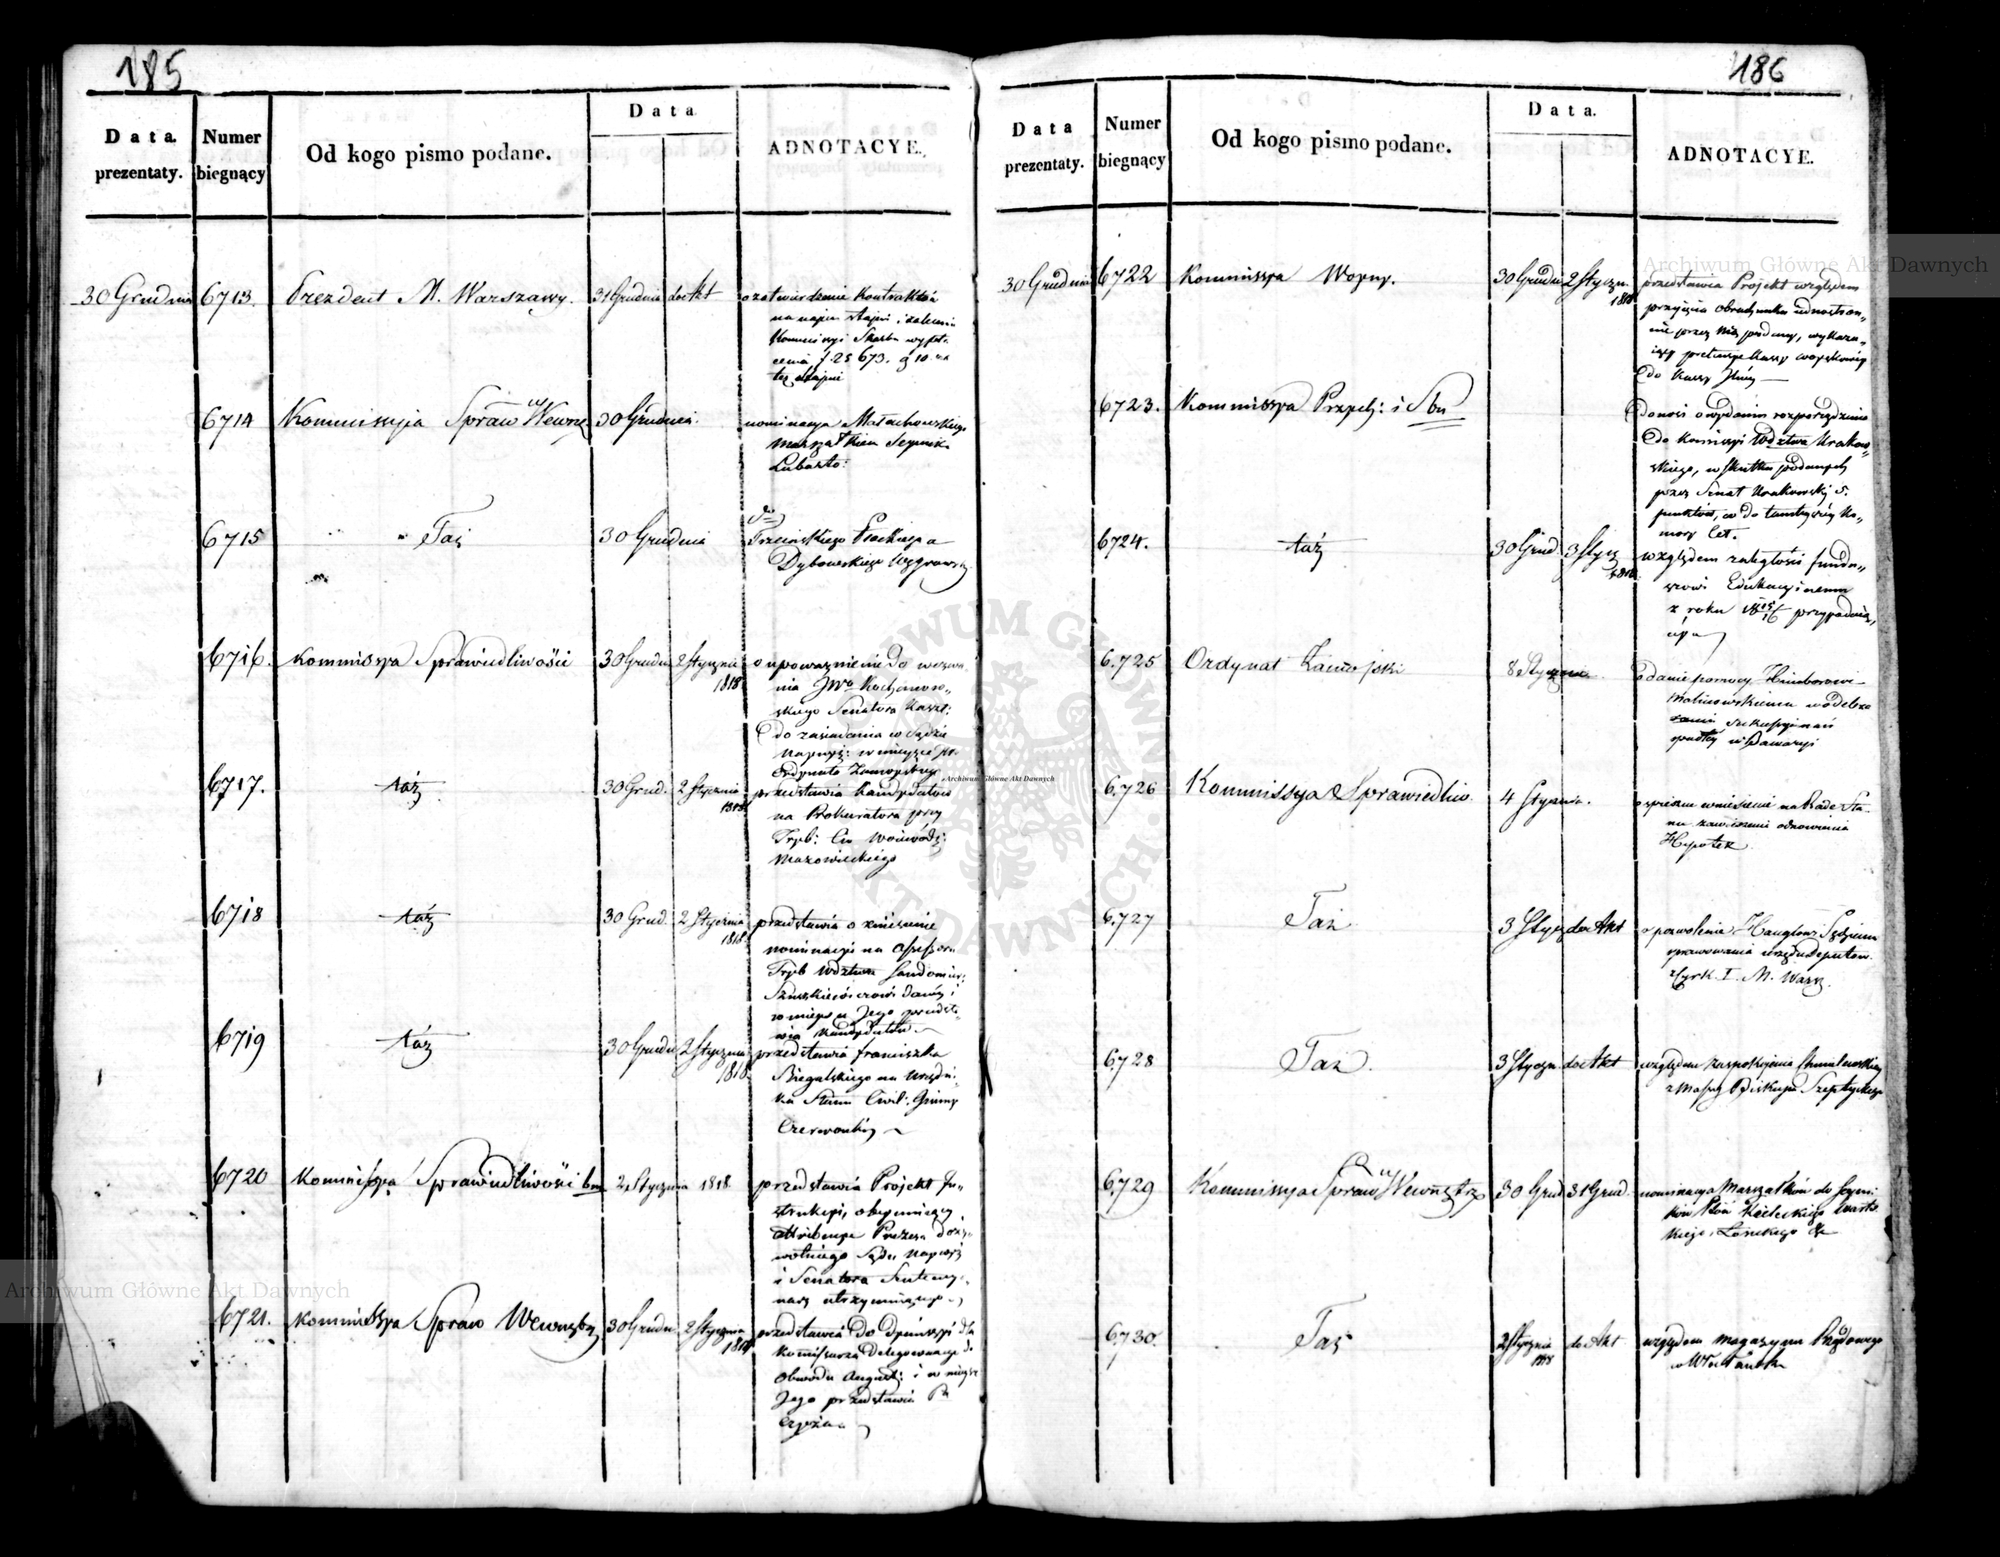 185
Data prezentaty. Numer biegnący Od kogo pismo podane. Data ADNOTACYE.
30 Grudnia 6713. Prezdent M. Warszawy. 31 Grudnia do Akt
o zatwierdzenie Kontraktów
na najem stajni i zalecenie
Kommissyi Skarbu wypła-
cenia f. 25 673. g 10. za
też stajnie
6714 Kommissyja Spraw Wewnę 30 Grudnia.
nominacya Małachowskiego
Marszałkiem Seymiku
Lubarto:
6715 Taż 30 Grudnia
Trzcińskiego Płockiego a
Dybowskiego Węgrowsk
6716. Kommissya Sprawiedliwości 30 Grudn 2 Stycznia 1818
o upoważnienie do wezwa-
nia JWo Kochanow-
skiego Senatora Kaszt:
do zasiadania w Sądzie
Najwyż: w miejsce
Ordynata Zamoyskiego
6717. táż 30 Grud. 2 Stycznia 1818
przedstawia Kandydatów
na Prokuratora przy
Tryb: Cw. Woiewódz:
Mazowieckiego
6718 táż 30 Grud. 2 Stycznia 1818
przedstawia o zniesienie
nominacyi na Assessora
Tryb Wdztwa Sandomir:
danéy i
w mieysce Jego przedsta-
wia Kandydatów
6719 táż 30 Grudn 2 Stycznia 1818
przedstawia Franciszka
Biegalskiego na Urzędni-
ka Stanu Cwil: Gminy
Czerwonki
6720 Kommissya Sprawiedliwości 2 Stycznia 1818
przedstawia Projekt In-
strukcyi, obeymuiący
attribucye Prezesa doży-
wotniego Sądu Najwyż
i Senatora
nasz utrzymującego
6721. Kommissya Spraw Wewnętrz 30 Grudn 2 Stycznia 1818
przedstawia do Dymissyi dla
Kommissarza Delegowanego do
Obwodu August: i w miejsce
Jego przedstawia
186
Data prezentaty. Numer biegnący Od kogo pismo podane. Data. ADNOTACYE.
30 Grudnia 6722 Kommissya Woyny. 30 Grudn 2 Styczn. 1818
przedstawia Projekt względem
przyięcia obrachunku iednostron-
nie przez Nią podany, wykazu-
iący pretensye Kassy woyskowéy
do Kassy Głów
6723. Kommissya Przych: i Sbu
donosi o wydaniu rozporządzenia
do Komissyi Wdztwa Krakow-
skiego, w skutku podanych
przez Senat Krakowski 5.
punktów, co do tamteyszéy Ko-
mory Cel.
6724. táż 30 Grud. 3 Stycz 1818
względem zaległości fundu-
szowi Edukacyinemu
z roku 1815/16 przypadaią-
céy
6.725 Ordynat Zamojski 8 Stycznia
o danie pomocy
Malinowskiemu w odebra
6.726 Kommissya Sprawiedliw. 4 Stycznia.
o wniesienie na Radę Sta-
nu zawieszenia odnowienia
Hypotek
6.727 Taż 3 Stycz do Akt
o pozwolenie Sędziemu
sprawowania urzędu Deputow.
z Cyrk. I. M. Warsz.
6.728 Taż. 3 Styczn. do Akt
względem zaspokojenia Chmielewskiey
z Massy Biskupa Szeptyckiego
6.729 Kommissya Spraw Wewnętrz 30 Grud 31 Grud.
nominacya Marszałków do Seymi
ków Ptów Kieleckiego Warts
kiego, Łomckiego &c
6.730. Taż 2 Stycznia 1818 do Akt
względem magazynu Rządowego
w Włocławku
Archiwum Główne Akt Dawnych
Archiwum Główne Akt Dawnych
Archiwum Główne Akt Dawnych
ARCHIWUM GŁÓWNE AKT DAWNYCH